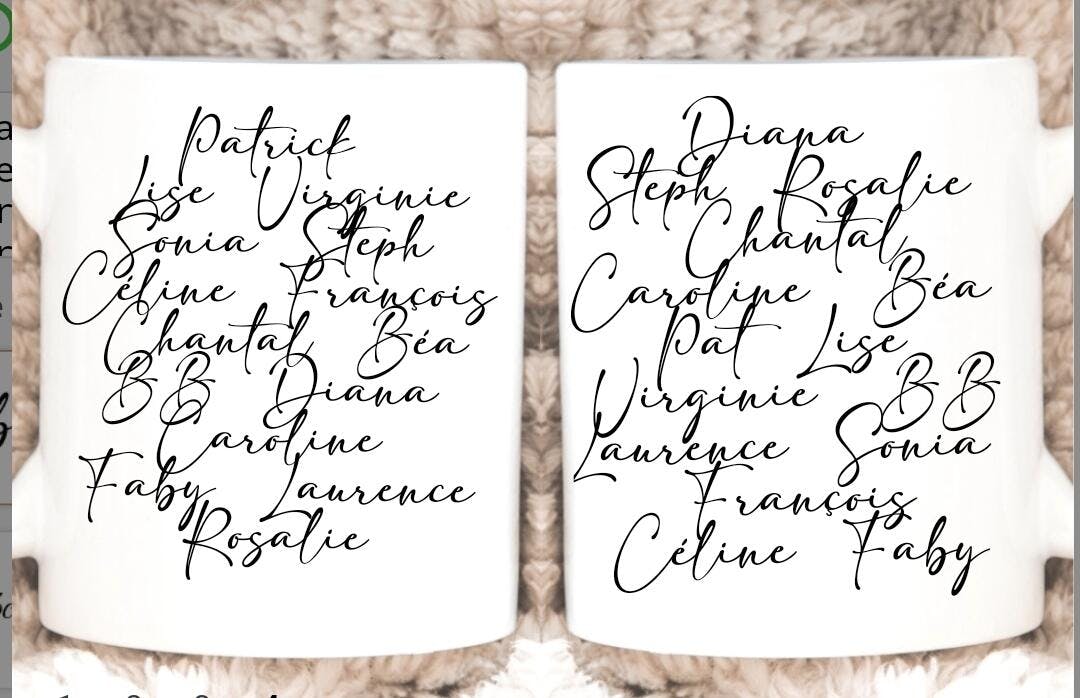 Patrick
Lise Virginie
Sonia Steph
Céline François
Chantal Béa
BB Diana
Caroline
Faby Laurence
Rosalie
Diana
Steph Rosalie
Chantal
Caroline Béa
Pat Lise
Virginie BB
Laurence Sonia
François
Céline Faby